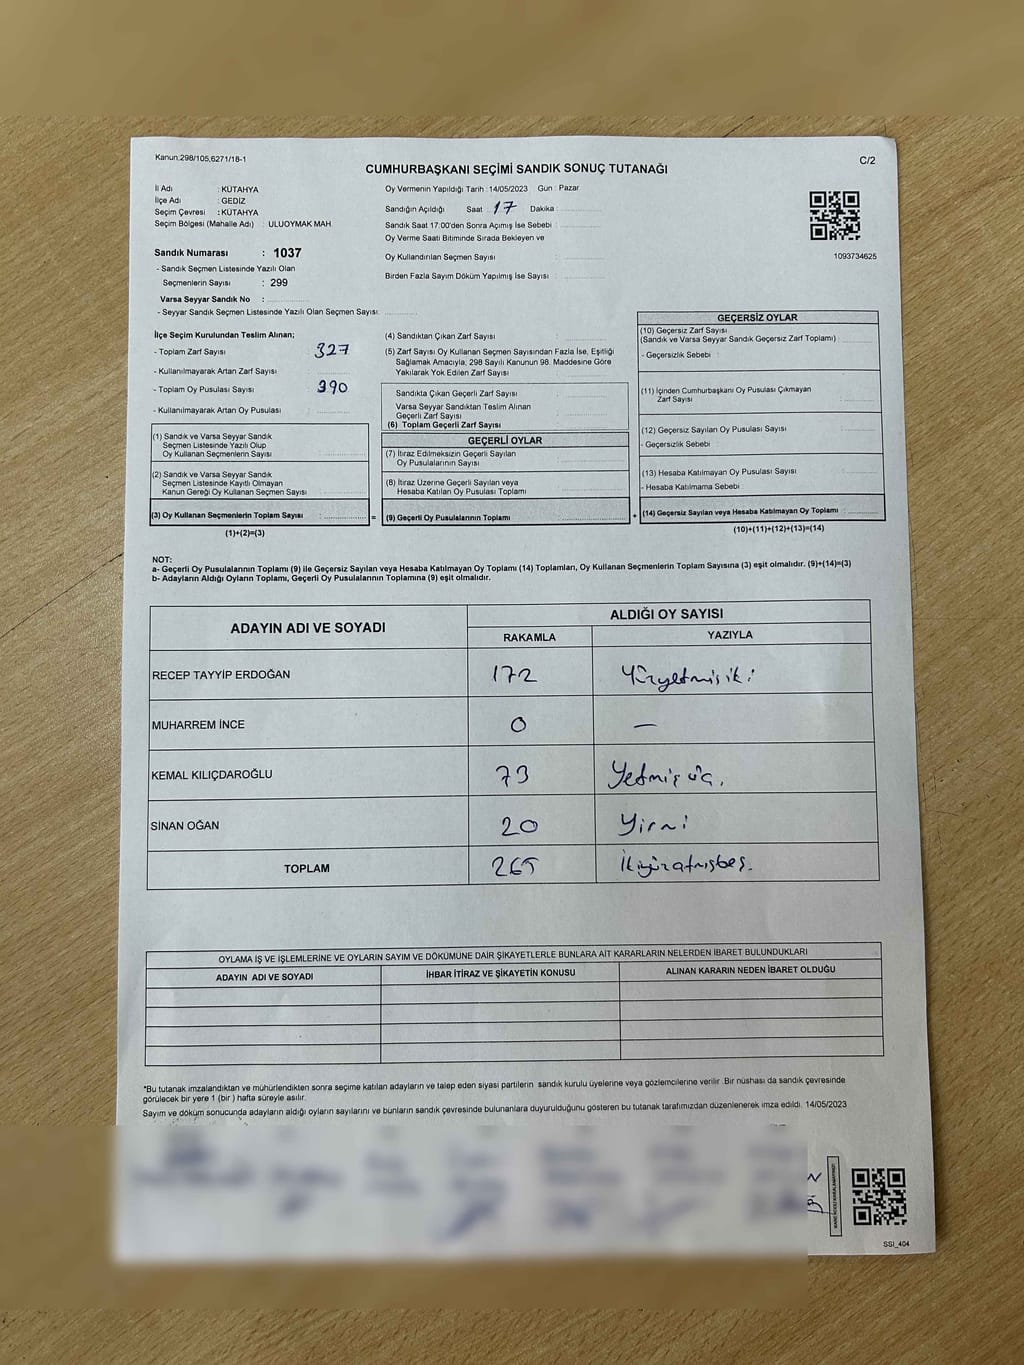 Kanun:298/105,6271/18-1
C/2
CUMHURBAŞKANI SEÇİMİ SANDIK SONUÇ TUTANAĞI
İl Adı : KÜTAHYA
İlçe Adı : GEDİZ
Seçim Çevresi : KÜTAHYA
Seçim Bölgesi (Mahalle Adı) : ULUOYMAK MAH.
Oy Vermenin Yapıldığı Tarih : 14/05/2023 Gün : Pazar
Sandığın Açıldığı Saat : 17 Dakika :
Sandık Saat 17:00'den Sonra Açımış İse Sebebi :
Oy Verme Saati Bitiminde Sırada Bekleyen ve
Oy Kullandırılan Seçmen Sayısı :
Birden Fazla Sayım Döküm Yapılmış İse Sayısı :
1093734625
Sandık Numarası : 1037
- Sandık Seçmen Listesinde Yazılı Olan
Seçmenlerin Sayısı : 299
Varsa Seyyar Sandık No :
- Seyyar Sandık Seçmen Listesinde Yazılı Olan Seçmen Sayısı:
İlçe Seçim Kurulundan Teslim Alınan;
- Toplam Zarf Sayısı : 327
- Kullanılmayarak Artan Zarf Sayısı :
- Toplam Oy Pusulası Sayısı : 390
- Kullanılmayarak Artan Oy Pusulası :
(1) Sandık ve Varsa Seyyar Sandık
Seçmen Listesinde Yazılı Olup
Oy Kullanan Seçmenlerin Sayısı :
(2) Sandık ve Varsa Seyyar Sandık
Seçmen Listesinde Kayıtlı Olmayan
Kanun Gereği Oy Kullanan Seçmen Sayısı :
(3) Oy Kullanan Seçmenlerin Toplam Sayısı : =
(1)+(2)=(3)
(4) Sandıktan Çıkan Zarf Sayısı :
(5) Zarf Sayısı Oy Kullanan Seçmen Sayısından Fazla İse, Eşitliği
Sağlamak Amacıyla, 298 Sayılı Kanunun 98. Maddesine Göre
Yakılarak Yok Edilen Zarf Sayısı :
Sandıkta Çıkan Geçerli Zarf Sayısı :
Varsa Seyyar Sandıktan Teslim Alınan
Geçerli Zarf Sayısı :
(6) Toplam Geçerli Zarf Sayısı :
GEÇERLİ OYLAR
(7) İtiraz Edilmeksizin Geçerli Sayılan
Oy Pusulalarının Sayısı :
(8) İtiraz Üzerine Geçerli Sayılan veya
Hesaba Katılan Oy Pusulası Toplamı :
(9) Geçerli Oy Pusulalarının Toplamı : +
GEÇERSİZ OYLAR
(10) Geçersiz Zarf Sayısı
(Sandık ve Varsa Seyyar Sandık Geçersiz Zarf Toplamı) :
- Geçersizlik Sebebi :
(11) İçinden Cumhurbaşkanı Oy Pusulası Çıkmayan
Zarf Sayısı :
(12) Geçersiz Sayılan Oy Pusulası Sayısı :
- Geçersizlik Sebebi :
(13) Hesaba Katılmayan Oy Pusulası Sayısı :
- Hesaba Katılmama Sebebi :
(14) Geçersiz Sayılan veya Hesaba Katılmayan Oy Toplamı :
(10)+(11)+(12)+(13)=(14)
NOT:
a- Geçerli Oy Pusulalarının Toplamı (9) ile Geçersiz Sayılan veya Hesaba Katılmayan Oy Toplamı (14) Toplamları, Oy Kullanan Seçmenlerin Toplam Sayısına (3) eşit olmalıdır. (9)+(14)=(3)
b- Adayların Aldığı Oyların Toplamı, Geçerli Oy Pusulalarının Toplamına (9) eşit olmalıdır.
ADAYIN ADI VE SOYADI
ALDIĞI OY SAYISI
RAKAMLA YAZIYLA
RECEP TAYYİP ERDOĞAN 172 Yüzyetmişiki
MUHARREM İNCE 0 —
KEMAL KILIÇDAROĞLU 73 Yetmişüç.
SİNAN OĞAN 20 Yirmi
TOPLAM 265 İkiyüzatmışbeş.
OYLAMA İŞ VE İŞLEMLERİNE VE OYLARIN SAYIM VE DÖKÜMÜNE DAİR ŞİKAYETLERLE BUNLARA AİT KARARLARIN NELERDEN İBARET BULUNDUKLARI
ADAYIN ADI VE SOYADI İHBAR İTİRAZ VE ŞİKAYETİN KONUSU ALINAN KARARIN NEDEN İBARET OLDUĞU
*Bu tutanak imzalandıktan ve mühürlendikten sonra seçime katılan adayların ve talep eden siyasi partilerin sandık kurulu üyelerine veya gözlemcilerine verilir .Bir nüshası da sandık çevresinde
görülecek bir yere 1 (bir ) hafta süreyle asılır.
Sayım ve döküm sonucunda adayların aldığı oyların sayılarını ve bunların sandık çevresinde bulunanlara duyurulduğunu gösteren bu tutanak tarafımızdan düzenlenerek imza edildi. 14/05/2023
SSI_404